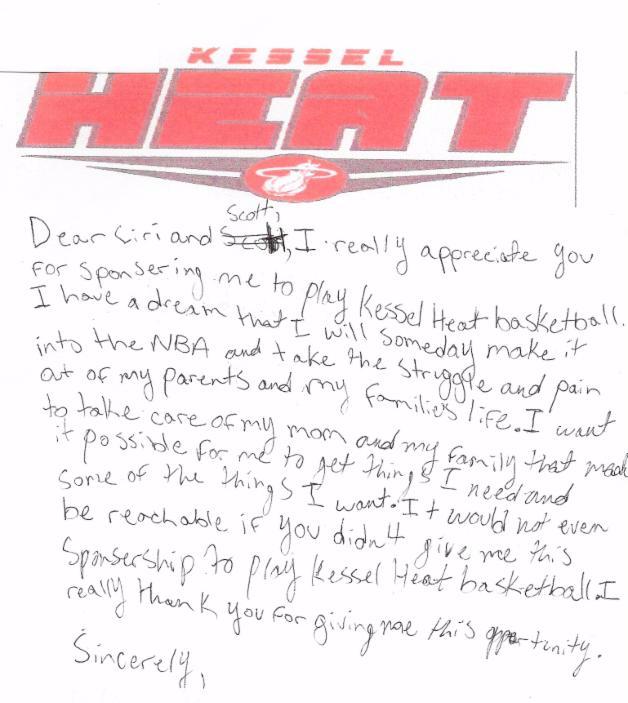 KESSEL
HEAT
Scott,
Dear Siri and Scott, I really appreciate you
for sponsering me to play Kessel Heat basketball.
I have a dream that I will someday make it
into the NBA and take the struggle and pain
out of my parents and my families life. I want
to take care of my mom and my family that made
it possible for me to get things I need and
some of the things I want. It would not even
be reachable if you didn4 give me this
Sponsership to play Kessel Heat basketball. I
really thank you for giving me this oppertunity.
Sincerely,